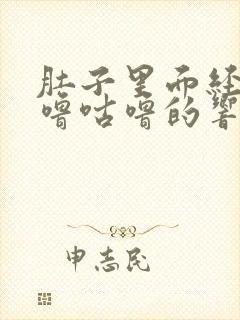 肚子里面经
噜咕噜的响
申志民